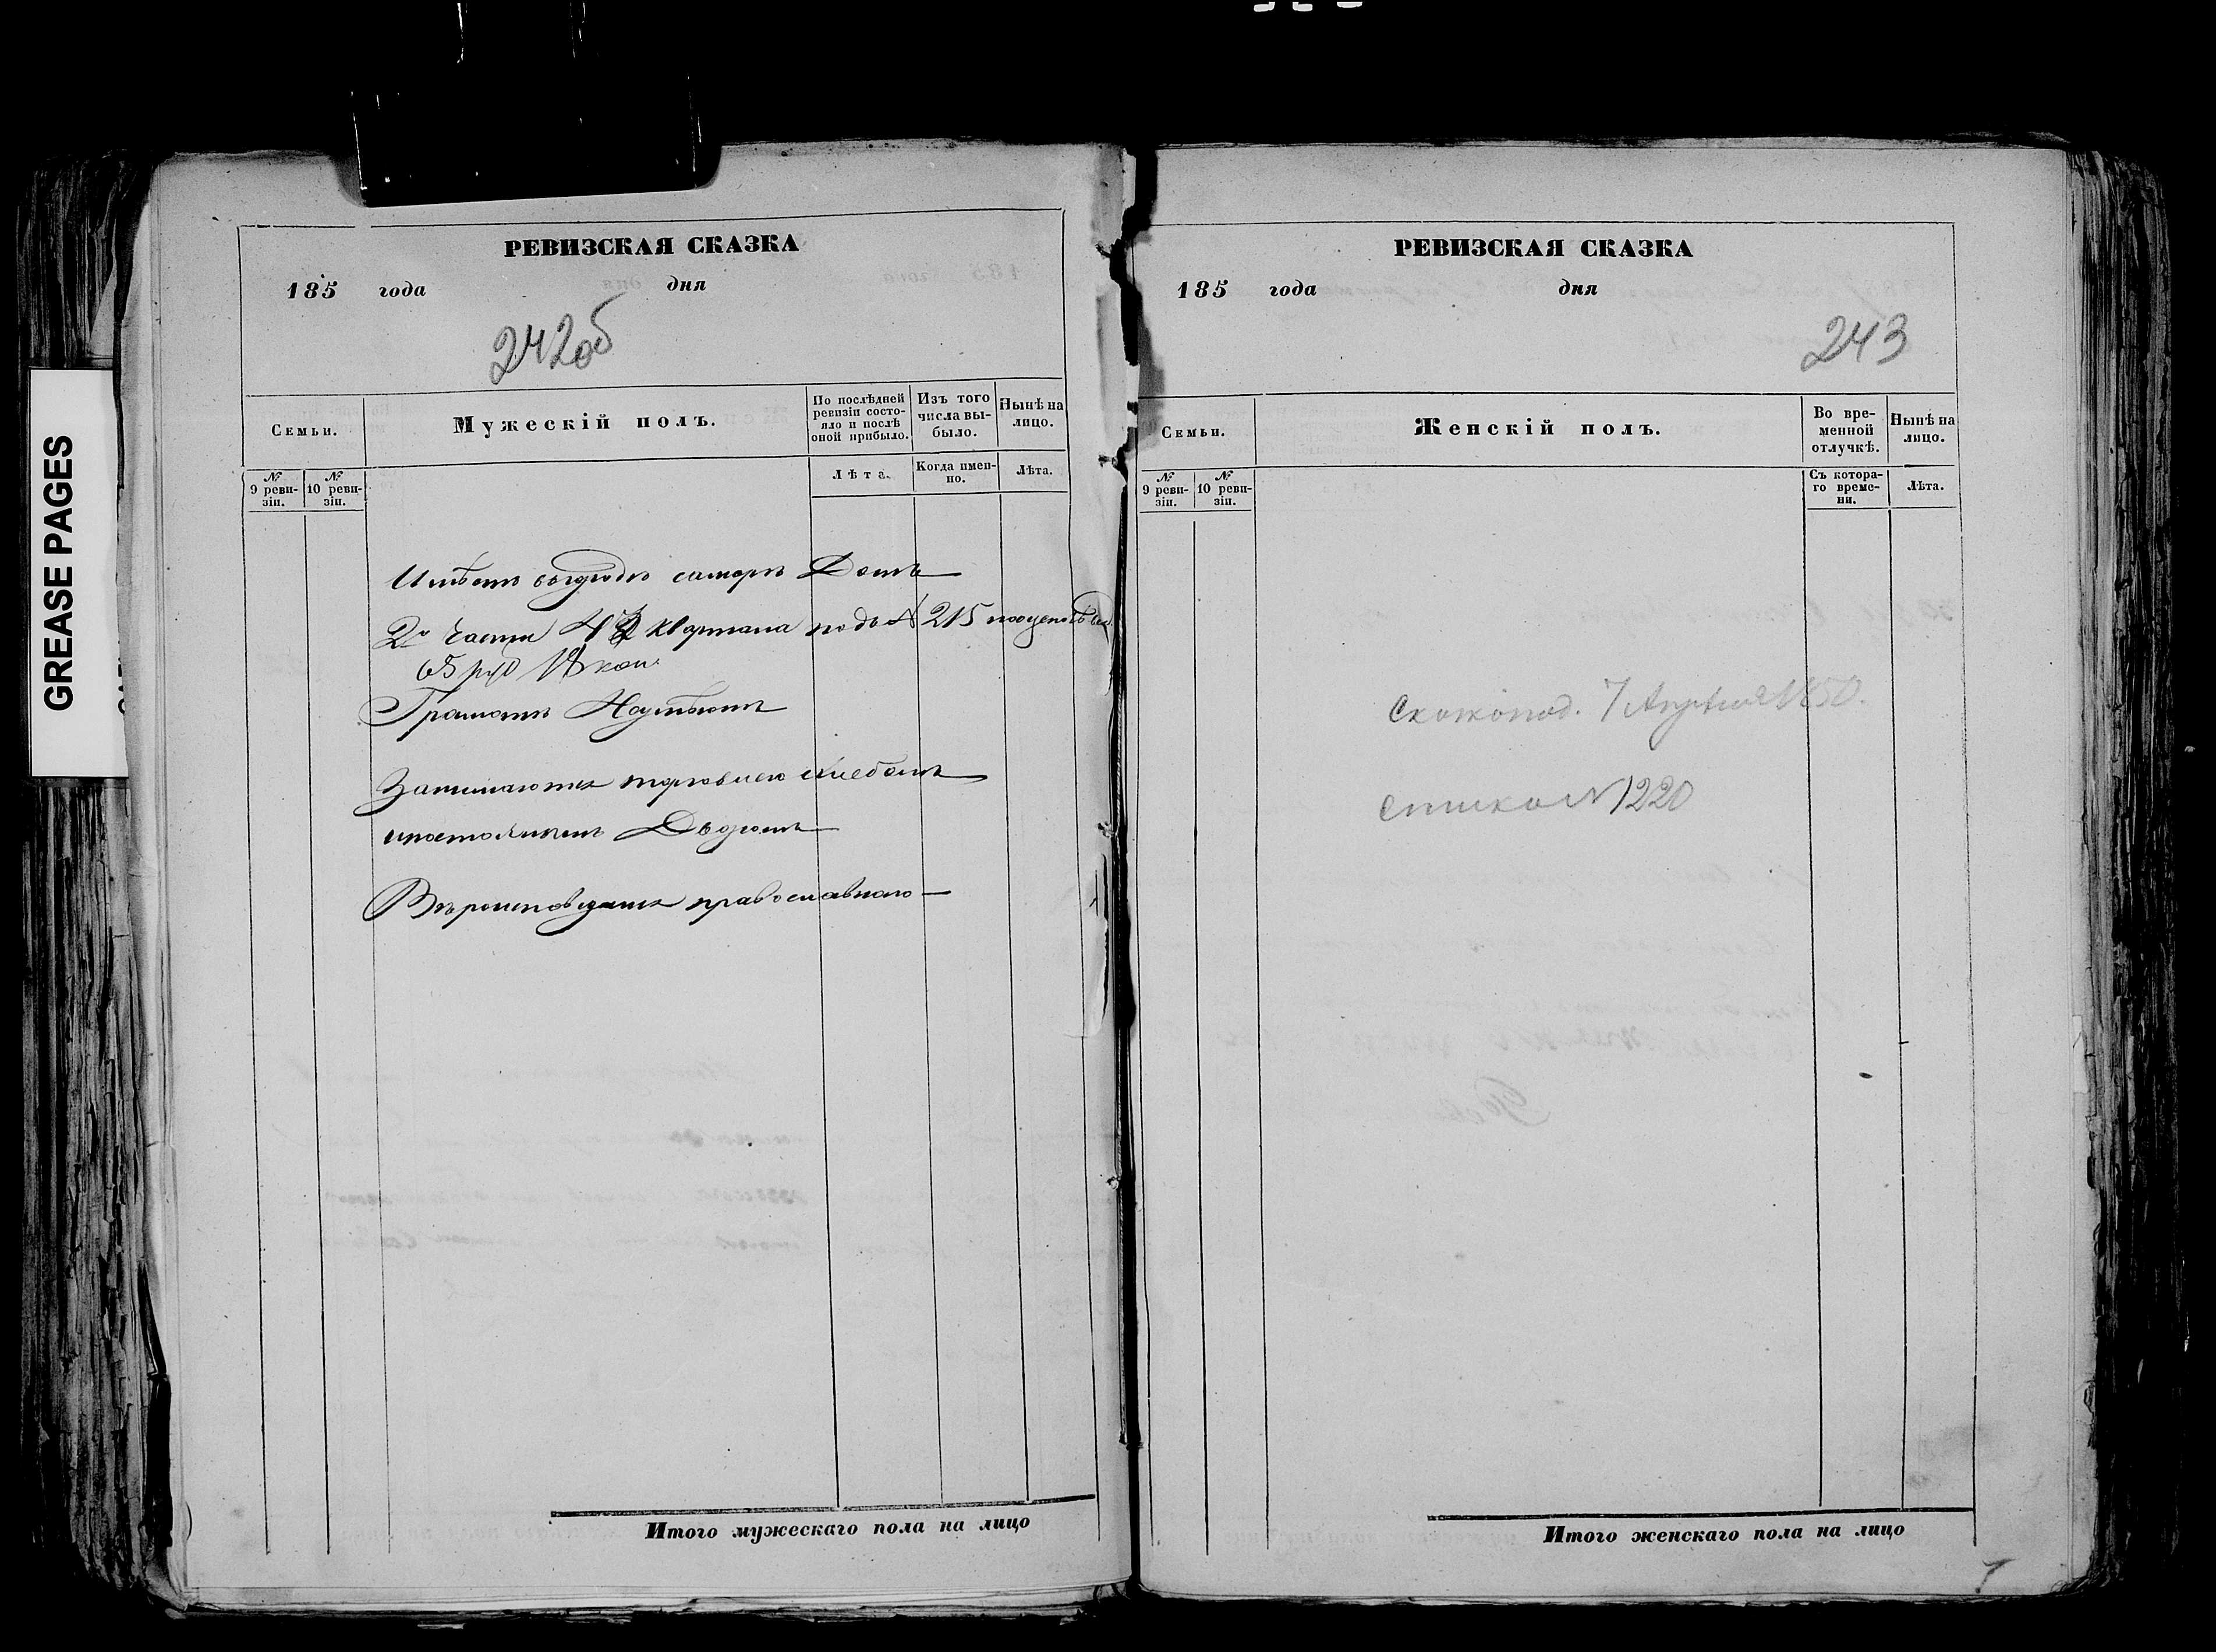 GREASE PAGES
РЕВИЗСКАЯ СКАЗКА
185 года дня
242об
Семьи.
Мужескій полъ.
По послѣдней ревизіи состояло и послѣ оной прибыло.
Изъ того числа выбыло.
Нынѣ на лицо.
№ 9 ревизіи.
№ 10 ревизіи.
Лѣта.
Когда именно.
Лѣта.
Имѣетъ въ городѣ Самарѣ Домъ
2й части 4 квартала подъ № 215 пооценкѣ въ
65 руб 18 коп.
Грамотѣ Неумѣютъ
Занимаются торговлею хлебомъ
ипостоялымъ Дворомъ
Вѣроисповѣданія православнаго
Итого мужескаго пола на лицо
РЕВИЗСКАЯ СКАЗКА
185 года дня
243
Семьи.
Женскій полъ.
Во временной отлучкѣ.
Нынѣ на лицо.
№ 9 ревизіи.
№ 10 ревизіи.
Съ котораго времени.
Лѣта.
7 Апреля
№ 1220
Итого женскаго пола на лицо